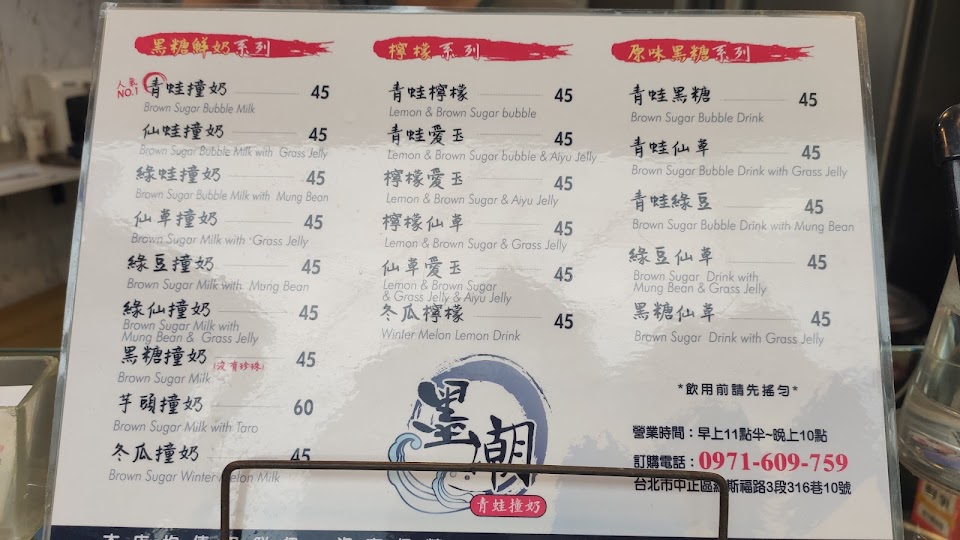 黑糖鮮奶系列
人氣 NO.1 青蛙撞奶 45
Brown Sugar Bubble Milk
仙蛙撞奶 45
Brown Sugar Bubble Milk with Grass Jelly
綠蛙撞奶 45
Brown Sugar Bubble Milk with Mung Bean
仙草撞奶 45
Brown Sugar Milk with Grass Jelly
綠豆撞奶 45
Brown Sugar Milk with Mung Bean
綠仙撞奶 45
Brown Sugar Milk with
Mung Bean & Grass Jelly
黑糖撞奶 (沒有珍珠) 45
Brown Sugar Milk
芋頭撞奶 60
Brown Sugar Milk with Taro
冬瓜撞奶 45
Brown Sugar Winter Melon Milk
檸檬系列
青蛙檸檬 45
Lemon & Brown Sugar bubble
青蛙愛玉 45
Lemon & Brown Sugar bubble & Aiyu Jelly
檸檬愛玉 45
Lemon & Brown Sugar & Aiyu Jelly
檸檬仙草 45
Lemon & Brown Sugar & Grass Jelly
仙草愛玉 45
Lemon & Brown Sugar
& Grass Jelly & Aiyu Jelly
冬瓜檸檬 45
Winter Melon Lemon Drink
墨潮
青蛙撞奶
原味黑糖系列
青蛙黑糖 45
Brown Sugar Bubble Drink
青蛙仙草 45
Brown Sugar Bubble Drink with Grass Jelly
青蛙綠豆 45
Brown Sugar Bubble Drink with Mung Bean
綠豆仙草 45
Brown Sugar Drink with
Mung Bean & Grass Jelly
黑糖仙草 45
Brown Sugar Drink with Grass Jelly
*飲用前請先搖勻*
營業時間：早上11點半~晚上10點
訂購電話：0971-609-759
台北市中正區羅斯福路3段316巷10號